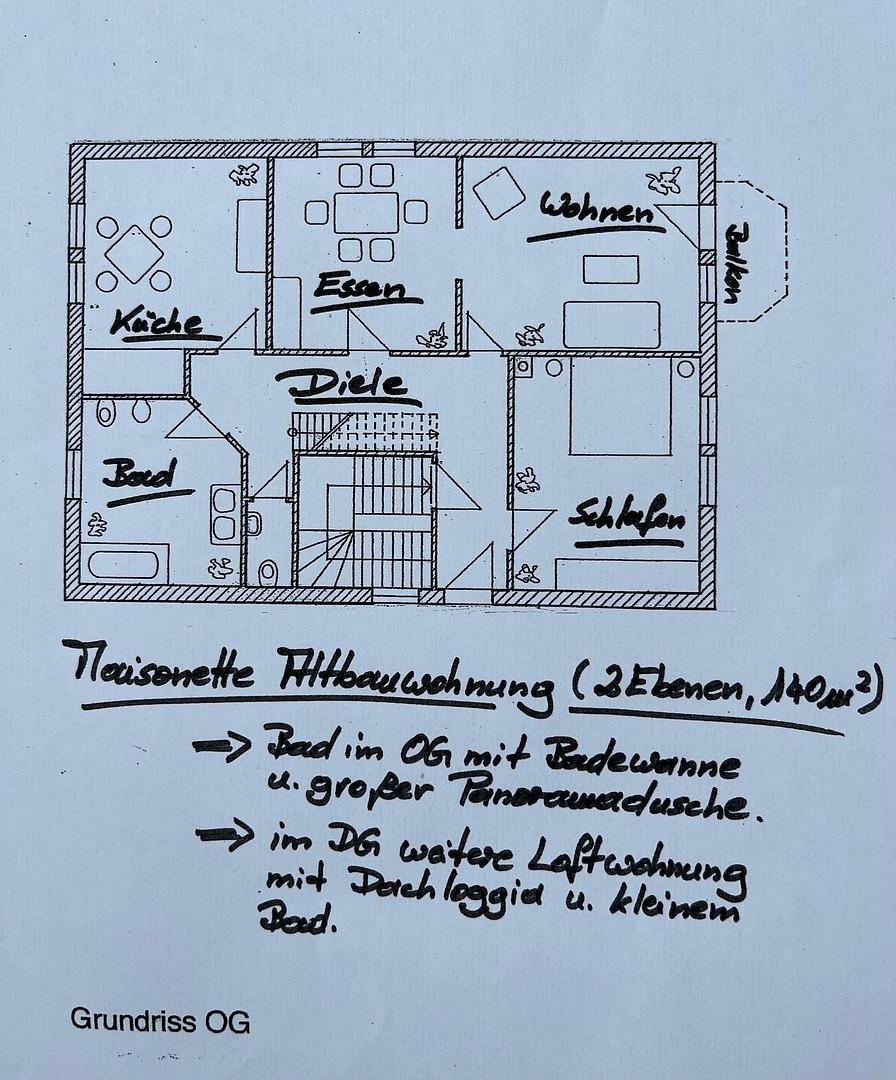 Wohnen
Balkon
Essen
Küche
Diele
Bad
Schlafen
Maisonette Altbauwohnung (2 Ebenen, 140 m²)
=> Bad im OG mit Badewanne
u. großer Panoramadusche.
=> im DG weitere Loftwohnung
mit Dachloggia u. kleinem
Bad.
Grundriss OG